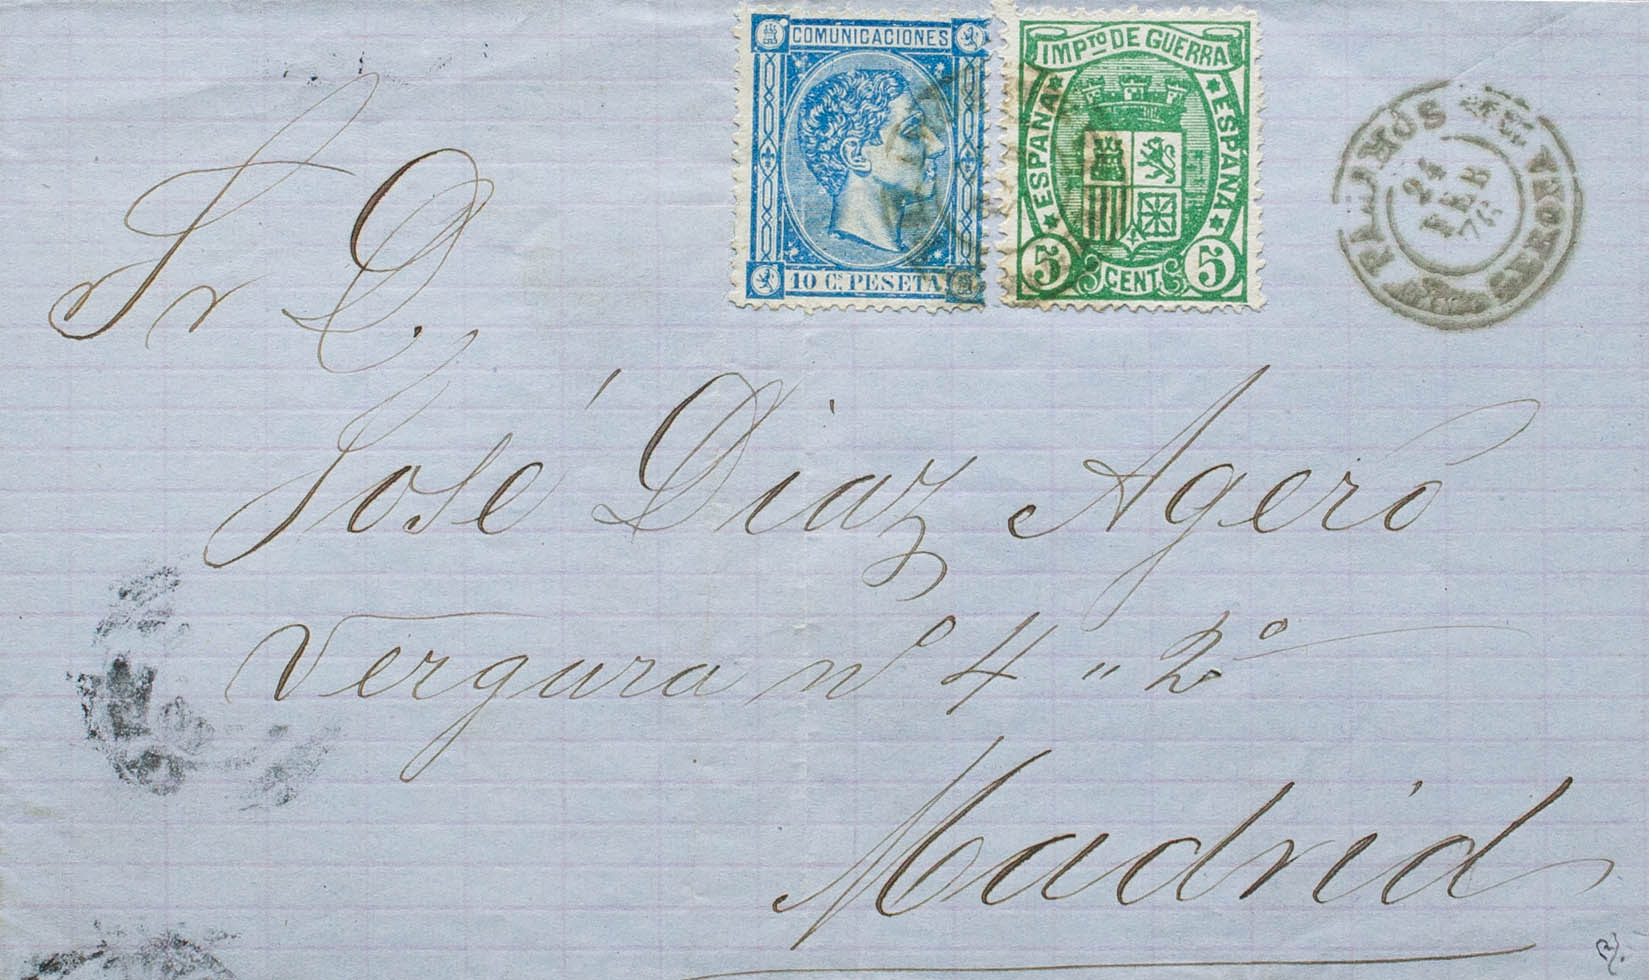 COMUNICACIONES
10 Cs PESETA
IMPTO DE GUERRA
ESPAÑA
ESPAÑA
5 CENT. 5
PALAMOS
24
FEB
76
GERONA
Sr D.
José Díaz Agero
Vergara nº 4 " 2º
Madrid